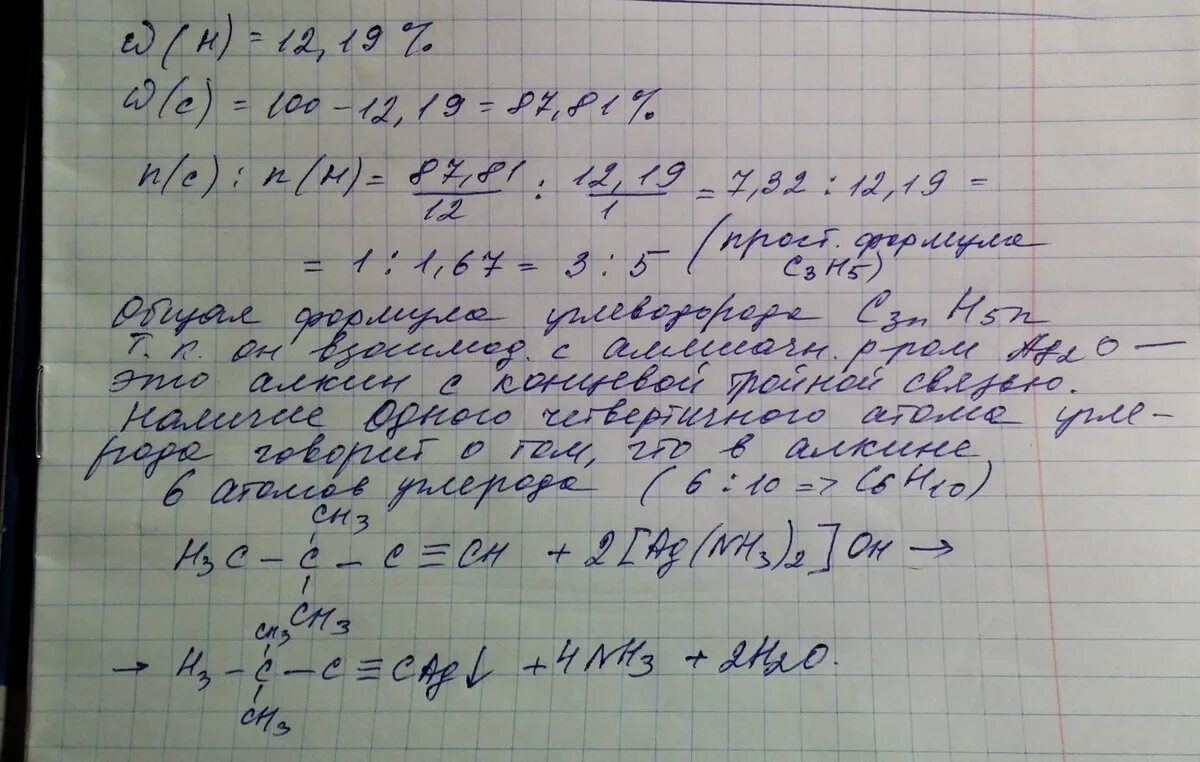 ω(H) = 12,19%
ω(C) = 100 - 12,19 = 87,81%
n(C) : n(H) = 87,81/12 : 12,19/1 = 7,32 : 12,19 =
= 1 : 1,67 = 3 : 5 (прост. формула
C3H5)
Общая формула углеводорода C3nH5n
Т.к. он взаимод. с аммиачн. р-ром Ag2O —
это алкин с концевой тройной связью.
Наличие одного четвертичного атома угле-
рода говорит о том, что в алкине
6 атомов углерода (6:10 => C6H10)
CH3
H3C - C - C ≡ CH + 2[Ag(NH3)2]OH →
CH3
CH3
→ H3 - C - C ≡ CAg↓ + 4NH3 + 2H2O.
CH3